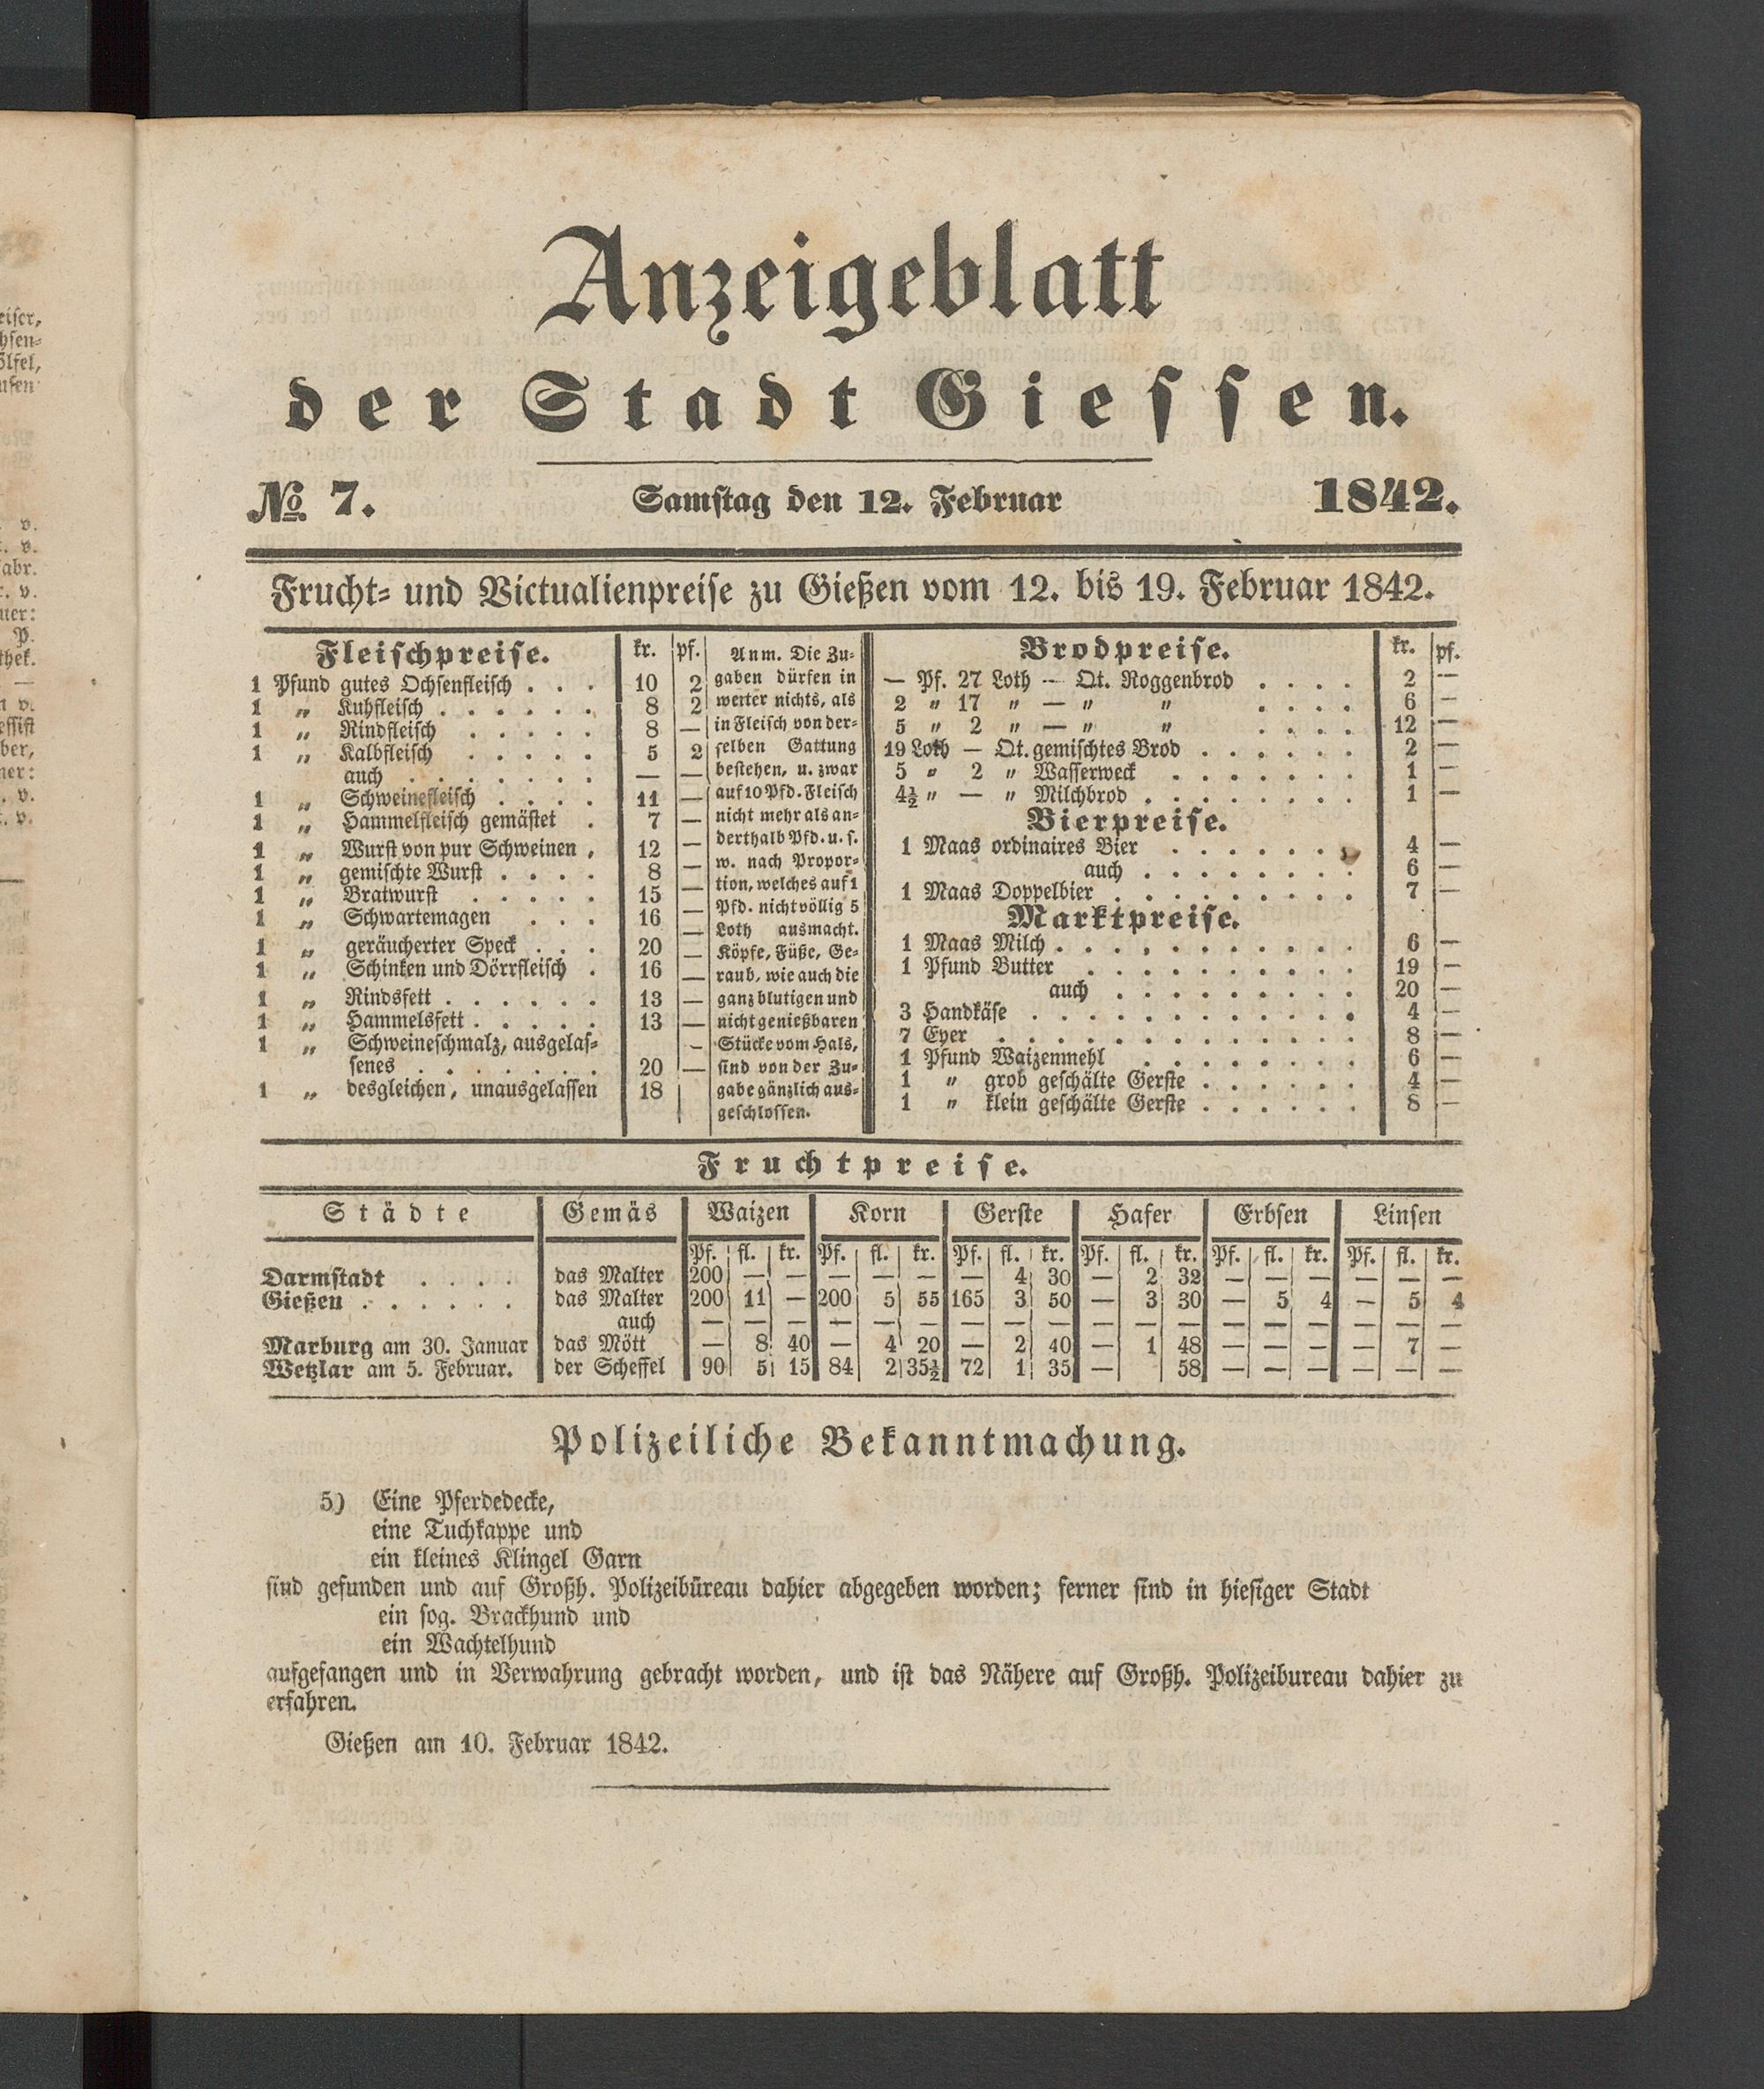 Anzeigeblatt
der Stadt Giessen.
No 7. Samstag den 12. Februar 1842.
Frucht- und Victualienpreise zu Gießen vom 12. bis 19. Februar 1842.
Fleischpreise. kr. pf.
1 Pfund gutes Ochsenfleisch . . . 10 2
1 „ Kuhfleisch . . . . . . 8 2
1 „ Rindfleisch . . . . . 8 —
1 „ Kalbfleisch . . . . . 5 2
auch . . . . . . . — —
1 „ Schweinefleisch . . . . 11 —
1 „ Hammelfleisch gemästet . 7 —
1 „ Wurst von pur Schweinen . 12 —
1 „ gemischte Wurst . . . . 8 —
1 „ Bratwurst . . . . . 15 —
1 „ Schwartemagen . . . 16 —
1 „ geräucherter Speck . . . 20 —
1 „ Schinken und Dörrfleisch . 16 —
1 „ Rindsfett . . . . . . 13 —
1 „ Hammelsfett . . . . . 13 —
1 „ Schweineschmalz, ausgelas-
senes . . . . . . . 20 —
1 „ desgleichen, unausgelassen 18
Anm. Die Zu-
gaben dürfen in
werter nichts, als
in Fleisch von der-
selben Gattung
bestehen, u. zwar
auf 10 Pfd. Fleisch
nicht mehr als an-
derthalb Pfd. u. s.
w. nach Propor-
tion, welches auf 1
Pfd. nicht völlig 5
Loth ausmacht.
Köpfe, Füße, Ge-
raub, wie auch die
ganz blutigen und
nicht genießbaren
Stücke vom Hals,
sind von der Zu-
gabe gänzlich aus-
geschlossen.
Brodpreise. kr. pf.
— Pf. 27 Loth — Qt. Roggenbrod . . . . 2 —
2 „ 17 „ — „ „ . . . . 6 —
5 „ 2 „ — „ „ . . . . 12 —
19 Loth — Qt. gemischtes Brod . . . . . . 2 —
5 „ 2 „ Wasserweck . . . . . . . 1 —
4½ „ — „ Milchbrod . . . . . . . . 1 —
Bierpreise.
1 Maas ordinaires Bier . . . . . . . 4 —
auch . . . . . . . . 6 —
1 Maas Doppelbier . . . . . . . . . 7 —
Marktpreise.
1 Maas Milch . . . . . . . . . . . 6 —
1 Pfund Butter . . . . . . . . . . 19 —
auch . . . . . . . . . 20 —
3 Handkäse . . . . . . . . . . . . 4 —
7 Eyer . . . . . . . . . . . . . 8 —
1 Pfund Waizenmehl . . . . . . . . 6 —
1 „ grob geschälte Gerste . . . . . . 4 —
1 „ klein geschälte Gerste . . . . . . 8 —
Fruchtpreise.
Städte Gemäs Waizen Korn Gerste Hafer Erbsen Linsen
Pf. fl. kr. Pf. fl. kr. Pf. fl. kr. Pf. fl. kr. Pf. fl. kr. Pf. fl. kr.
Darmstadt . . . . das Malter 200 — — — — — — 4 30 — 2 32 — — — — — —
Gießen . . . . . . das Malter 200 11 — 200 5 55 165 3 50 — 3 30 — 5 4 — 5 4
auch — — — — — — — — — — — — — — — — — —
Marburg am 30. Januar das Mött — 8 40 — 4 20 — 2 40 — 1 48 — — — — 7 —
Wetzlar am 5. Februar. der Scheffel 90 5 15 84 2 35½ 72 1 35 — 58 — — — — — —
Polizeiliche Bekanntmachung.
5) Eine Pferdedecke,
eine Tuchkappe und
ein kleines Klingel Garn
sind gefunden und auf Großh. Polizeibüreau dahier abgegeben worden; ferner sind in hiesiger Stadt
ein sog. Brackhund und
ein Wachtelhund
aufgefangen und in Verwahrung gebracht worden, und ist das Nähere auf Großh. Polizeibureau dahier zu
erfahren.
Gießen am 10. Februar 1842.